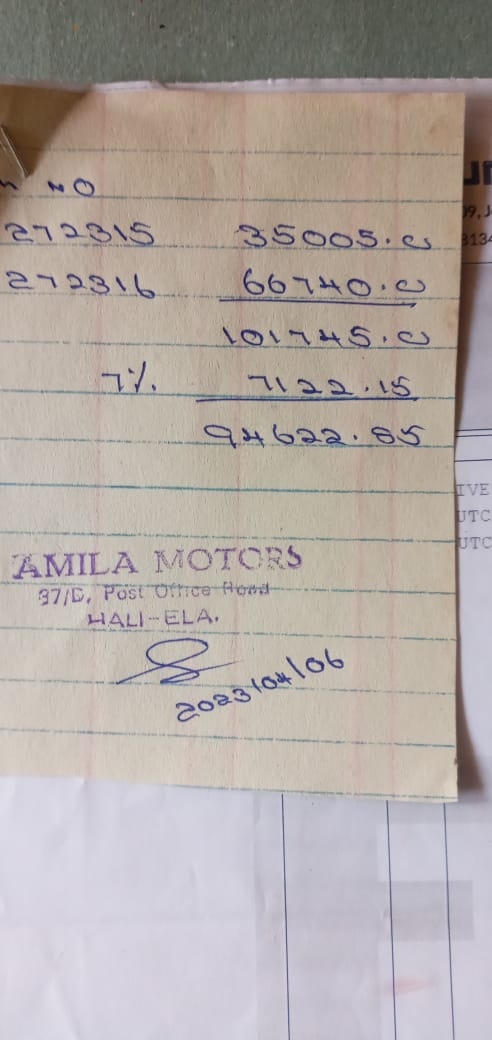 NO
272315 35005.00
272316 66740.00
101745.00
7% 7122.15
94622.85
AMILA MOTORS
37/B, Post Office Road
HALI-ELA.
2023/04/06